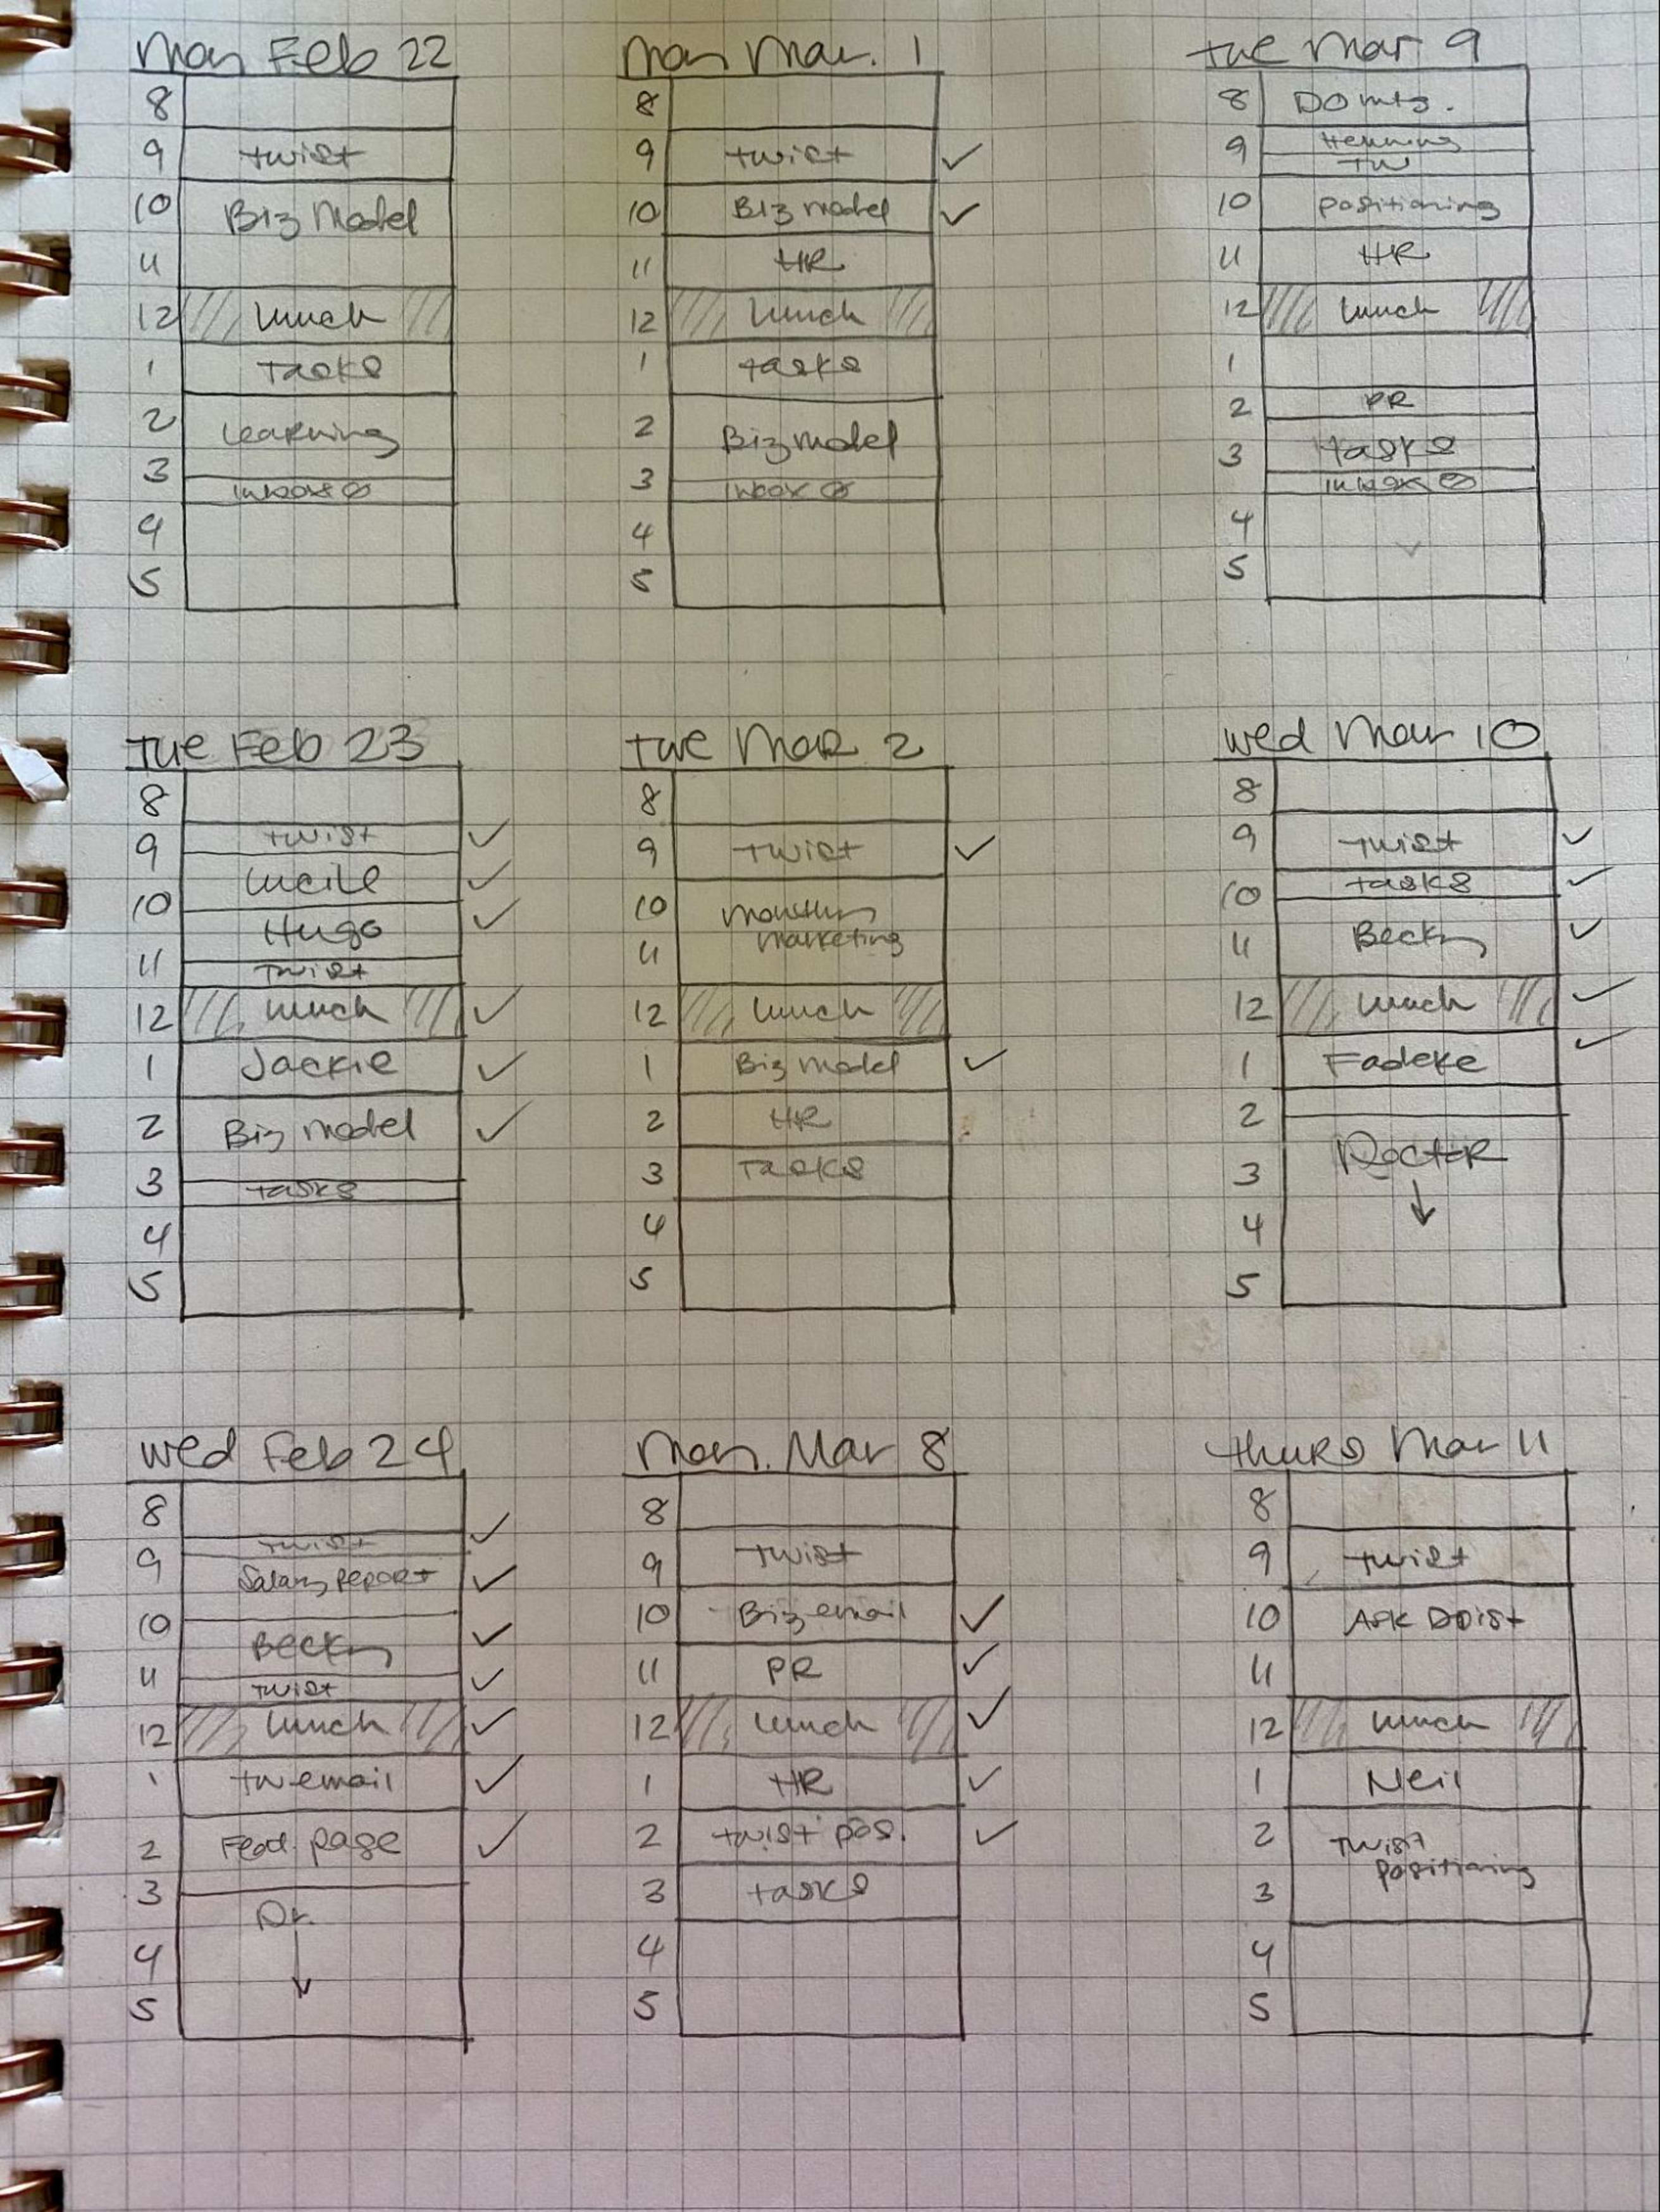 Mon Feb 22
8
9 Twist
10 Biz Model
11
12 Lunch
1 Tasks
2 Learning
3 Inbox 0
4
5
Tue Feb 23
8
9 Twist
Lucile
10
Hugo
11 Twist
12 Lunch
1 Jackie
2 Biz model
3 Tasks
4
5
Wed Feb 24
8
Twist
9 Salary report
10
Becky
11 Twist
12 Lunch
1 tw email
2 Feat. page
3 Dr.
4
5
Mon Mar. 1
8
9 Twist ✓
10 Biz model ✓
11 HR
12 Lunch
1 Tasks
2 Biz model
3 Inbox 0
4
5
Tue Mar 2
8
9 Twist ✓
10 Monthly
marketing
11
12 Lunch
1 Biz model ✓
2 HR
3 Tasks
4
5
Mon. Mar 8
8
9 Twist
10 Biz email ✓
11 PR ✓
12 Lunch ✓
1 HR ✓
2 Twist pos. ✓
3 Tasks
4
5
Tue Mar 9
8 DO mtg.
9 Henning
TW
10 Positioning
11 HR
12 Lunch
1
2 PR
3 Tasks
Inbox 0
4
5
Wed Mar 10
8
9 Twist ✓
10 Tasks ✓
11 Becky ✓
12 Lunch ✓
1 Fadeke ✓
2
3 Doctor
4
5
Thurs Mar 11
8
9 Twist
10 Ask Doist
11
12 Lunch
1 Neil
2 Twist
Positioning
3
4
5